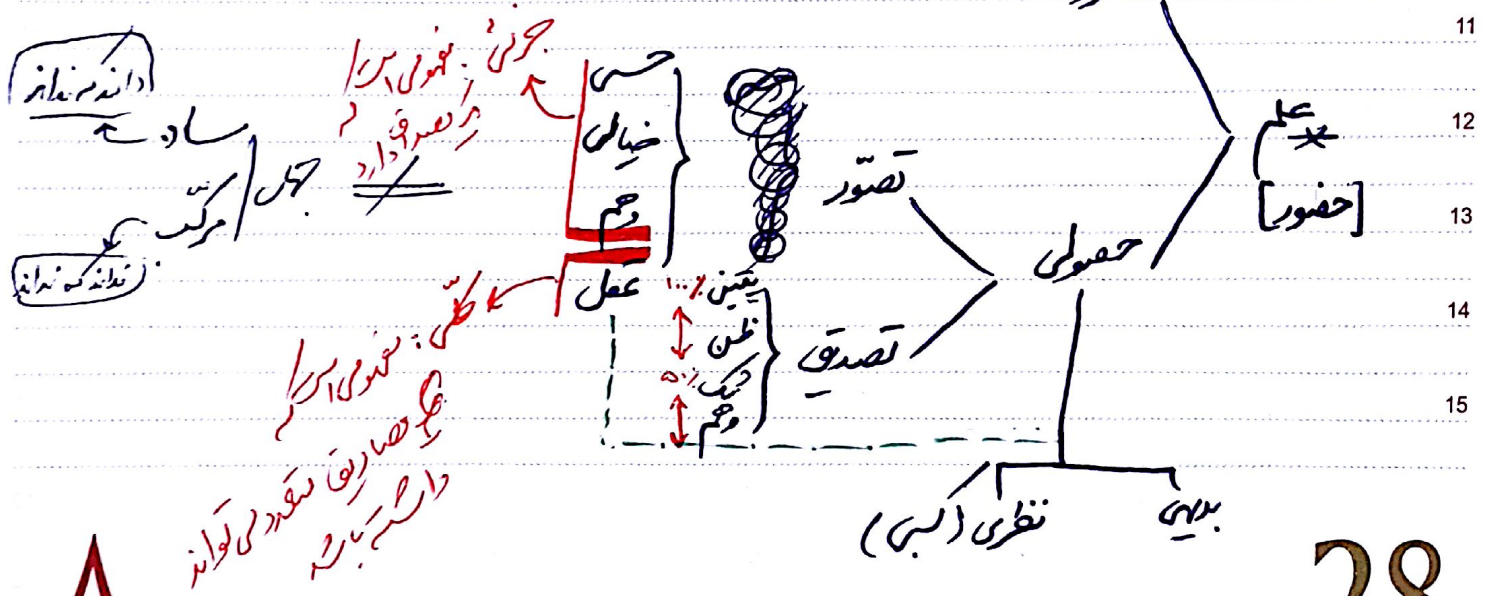 11
12
13
14
15
علم
[حضور]
حصولی
تصوّر
تصدیق
حسی
خیالی
وهم
عقل
یقین ٪۱۰۰
ظن
شک ٪۵۰
وهم
بدیهی
نظری (کسبی)
جزئی: مفهومی است که
یک مصداق دارد
کلّی: مفهومی است که
مصادیق متعدد می تواند
داشته باشد
جهل
ساده
مرکّب
داند که نداند
نداند که نداند
28